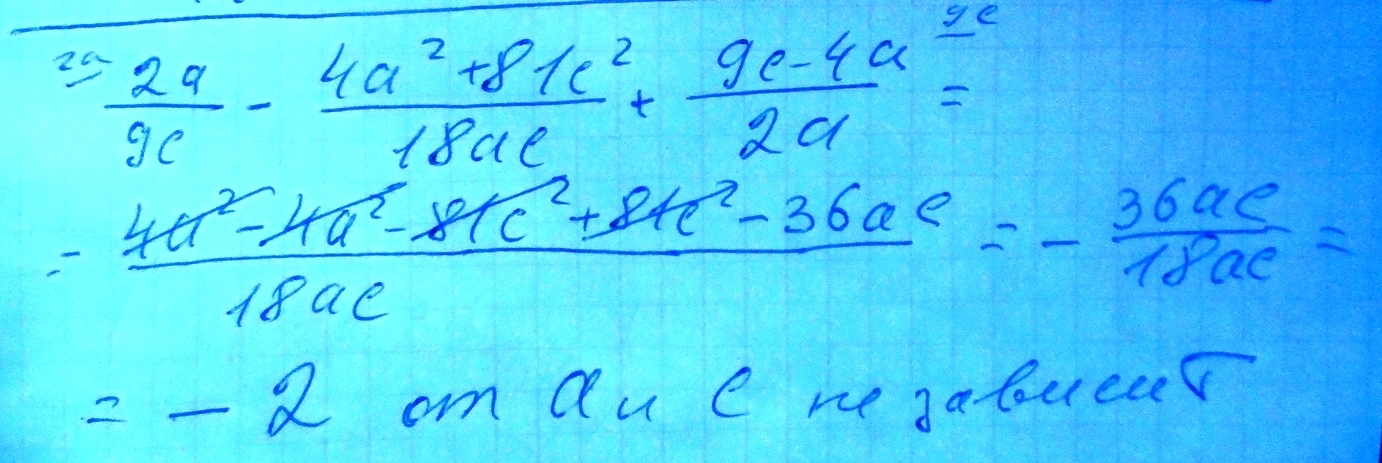 2a 2a/9c - 4a²+81c²/18ac + 9c-4a/2a 9c =
= 4a²-4a²-81c²+81c²-36ac/18ac = - 36ac/18ac =
= - 2 от a и c не зависит